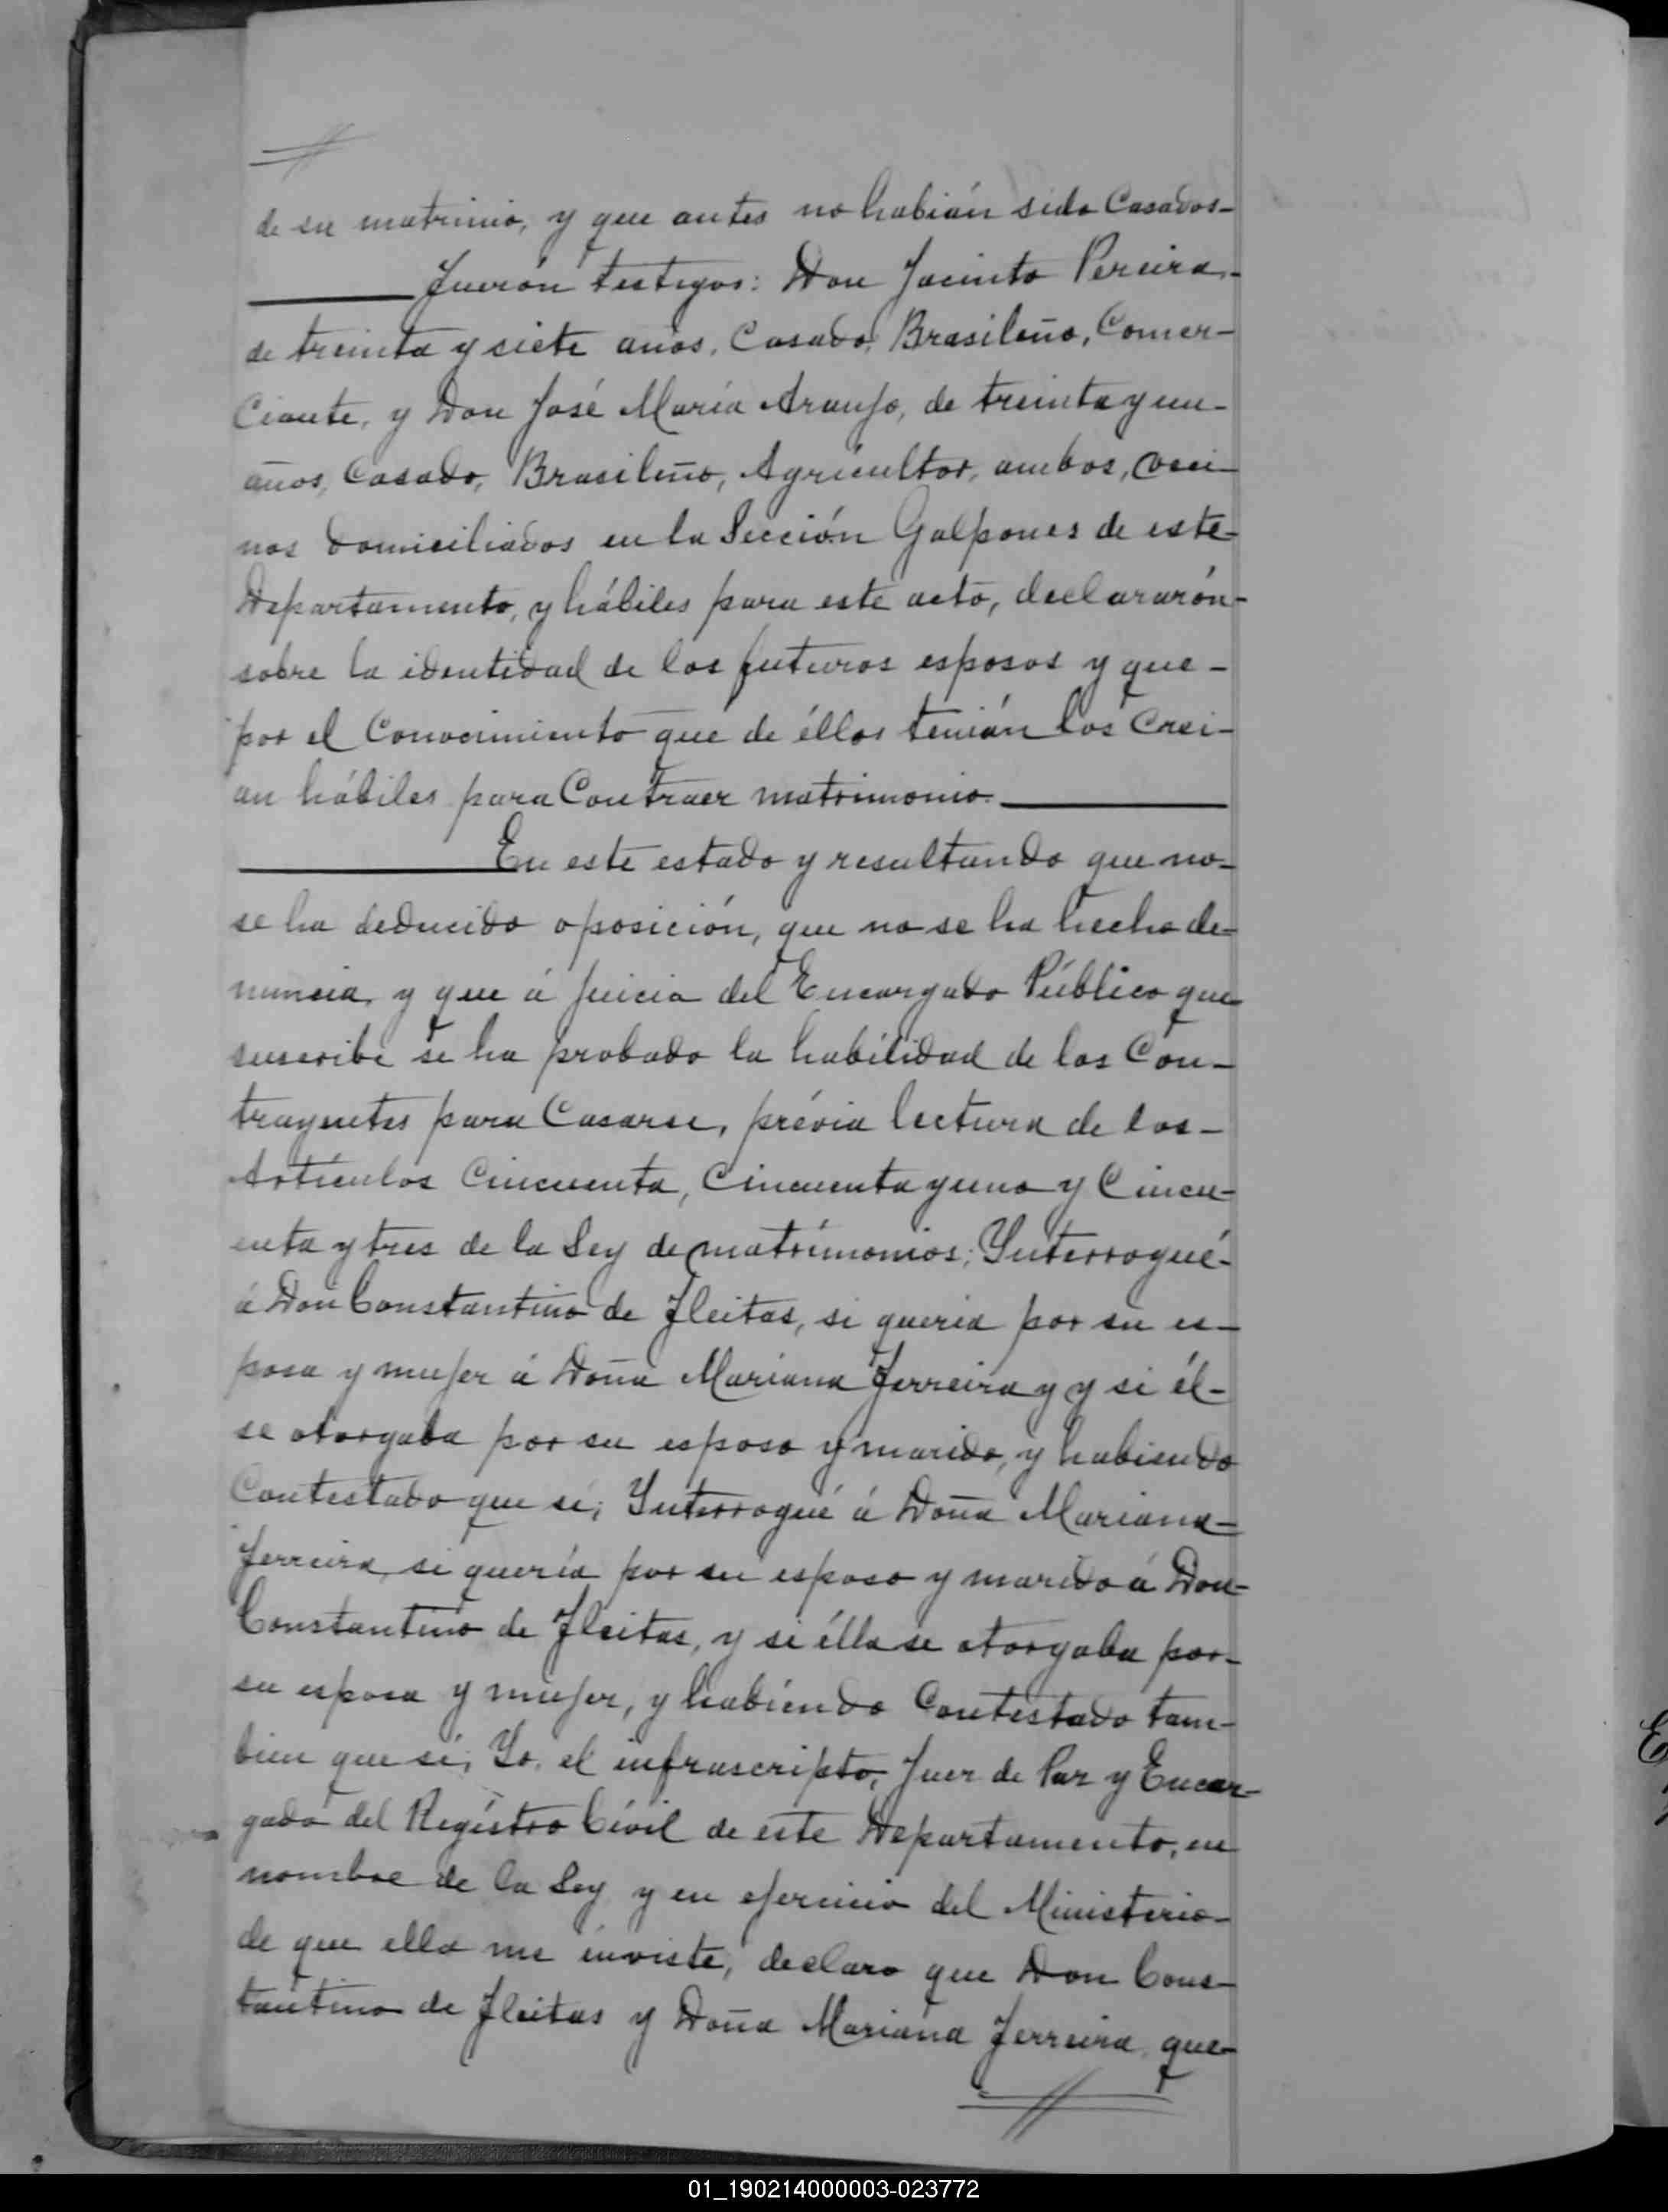 de su matrimio, y que antes no habián sido Casados-
Fuerón testigos: Don Jacinto Pereira,-
de treinta y siete años, Casado, Brasileño, Comer-
Ciante, y Don José María Araujo, de treinta y un-
años, Casado, Brasileño, Agricultor, ambos, veci-
nos domiciliados en la Sección Galpones de este-
Departamento, y hábiles para este acto, declararón-
sobre la identidad de los futuros esposos y que-
por el Conocimiento que de éllos tenián los Crei-
an hábiles para Contraer matrimonio.
En este estado y resultando que no-
se ha deducido oposición, que no se ha hecho de-
nuncia, y que á juicio del Encargado Público que
suscribe se ha probado la habilidad de los Con-
trayentes para Casarse, prévia lectura de los-
Artículos Cincuenta, Cincuenta y uno y Cincu-
enta y tres de la Ley de matrimonios; Ynterrogué-
á Don Constantino de Fleitas, si queria por su es-
posa y mujer á Doña Mariana Ferreira y y si él-
se otorgaba por su esposo y marido, y habiendo
Contestado que si; Ynterrogué á Doña Mariana-
Ferreira, si quería por su esposo y marido á Don-
Constantino de Fleitas, y si élla se otorgaba por-
su esposa y mujer, y habiendo Contestado tam-
bien que si; Yo, el infrascripto, Juez de Paz y Encar-
gado del Registro Civil de este Departamento, en
nombre de la Ley y en ejercicio del Ministerio-
de que ella me inviste, declaro que Don Cons-
tantino de Fleitas y Doña Mariana Ferreira, que-
01_190214000003-023772